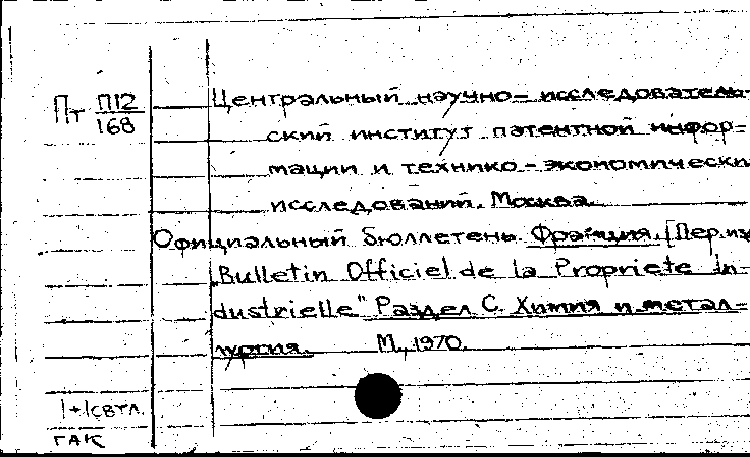 Пт П12
168
Центральный научно-исследователь-
ский институт патентной инфор-
мации и технико-экономически
исследований. Москва.
Официальный бюллетень. Франция. [Пер. из
„Bulletin Officiel de la Propriete In-
dustrielle" Раздел С. Химия и метал-
лургия. М., 1970.
1+1свтл.
ГАК